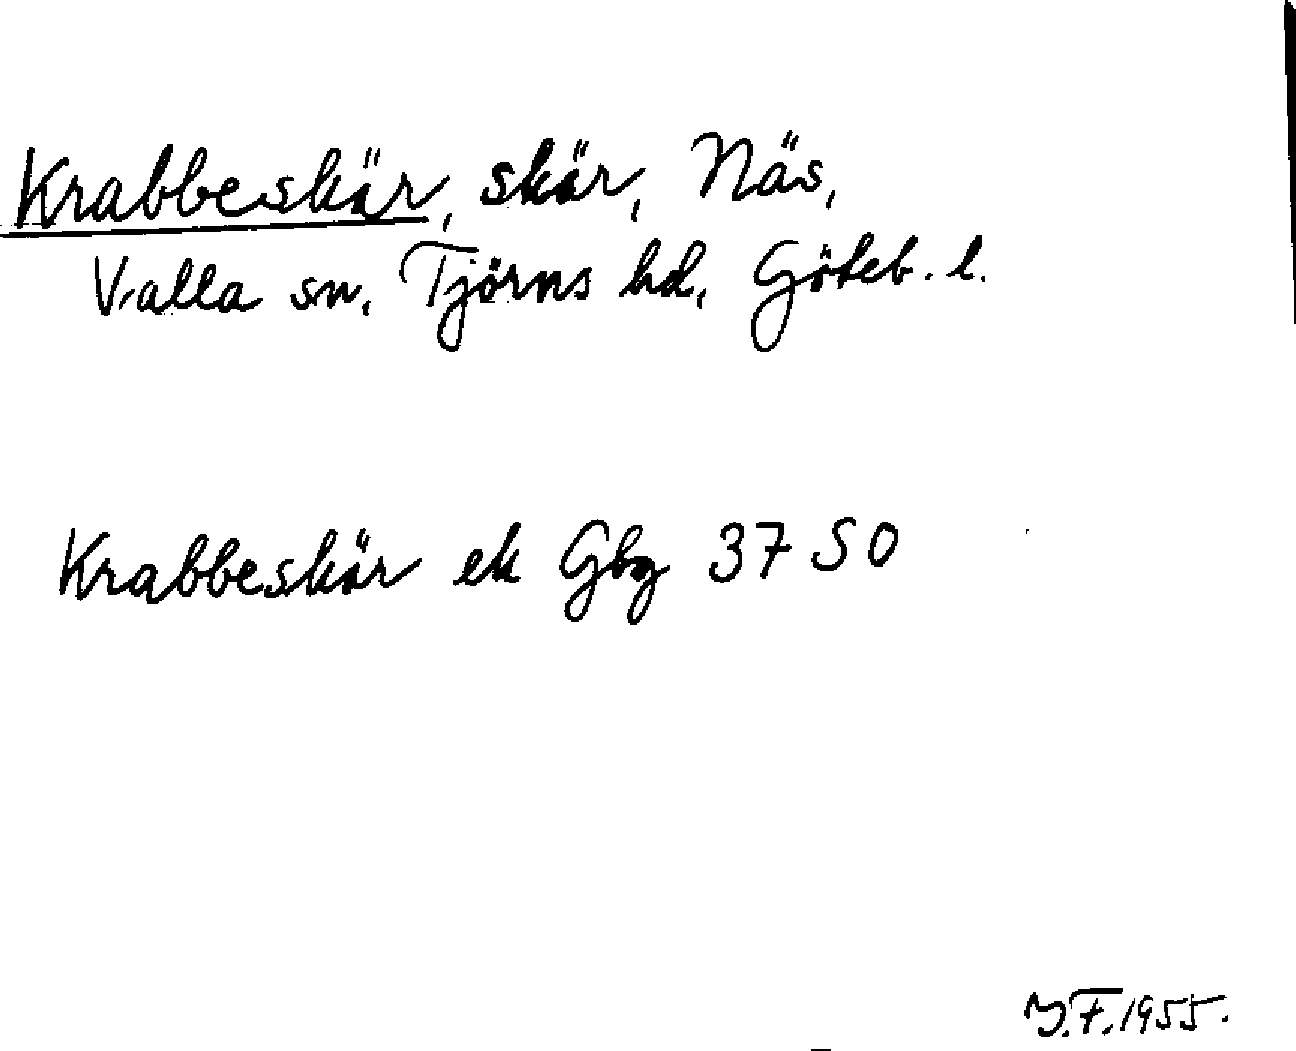 Krabbeskär, skär, Näs,
Valla sn, Tjörns hd, Göteb. l.
Krabbeskär ek Gbg 37 SO
Y.F. 1955.